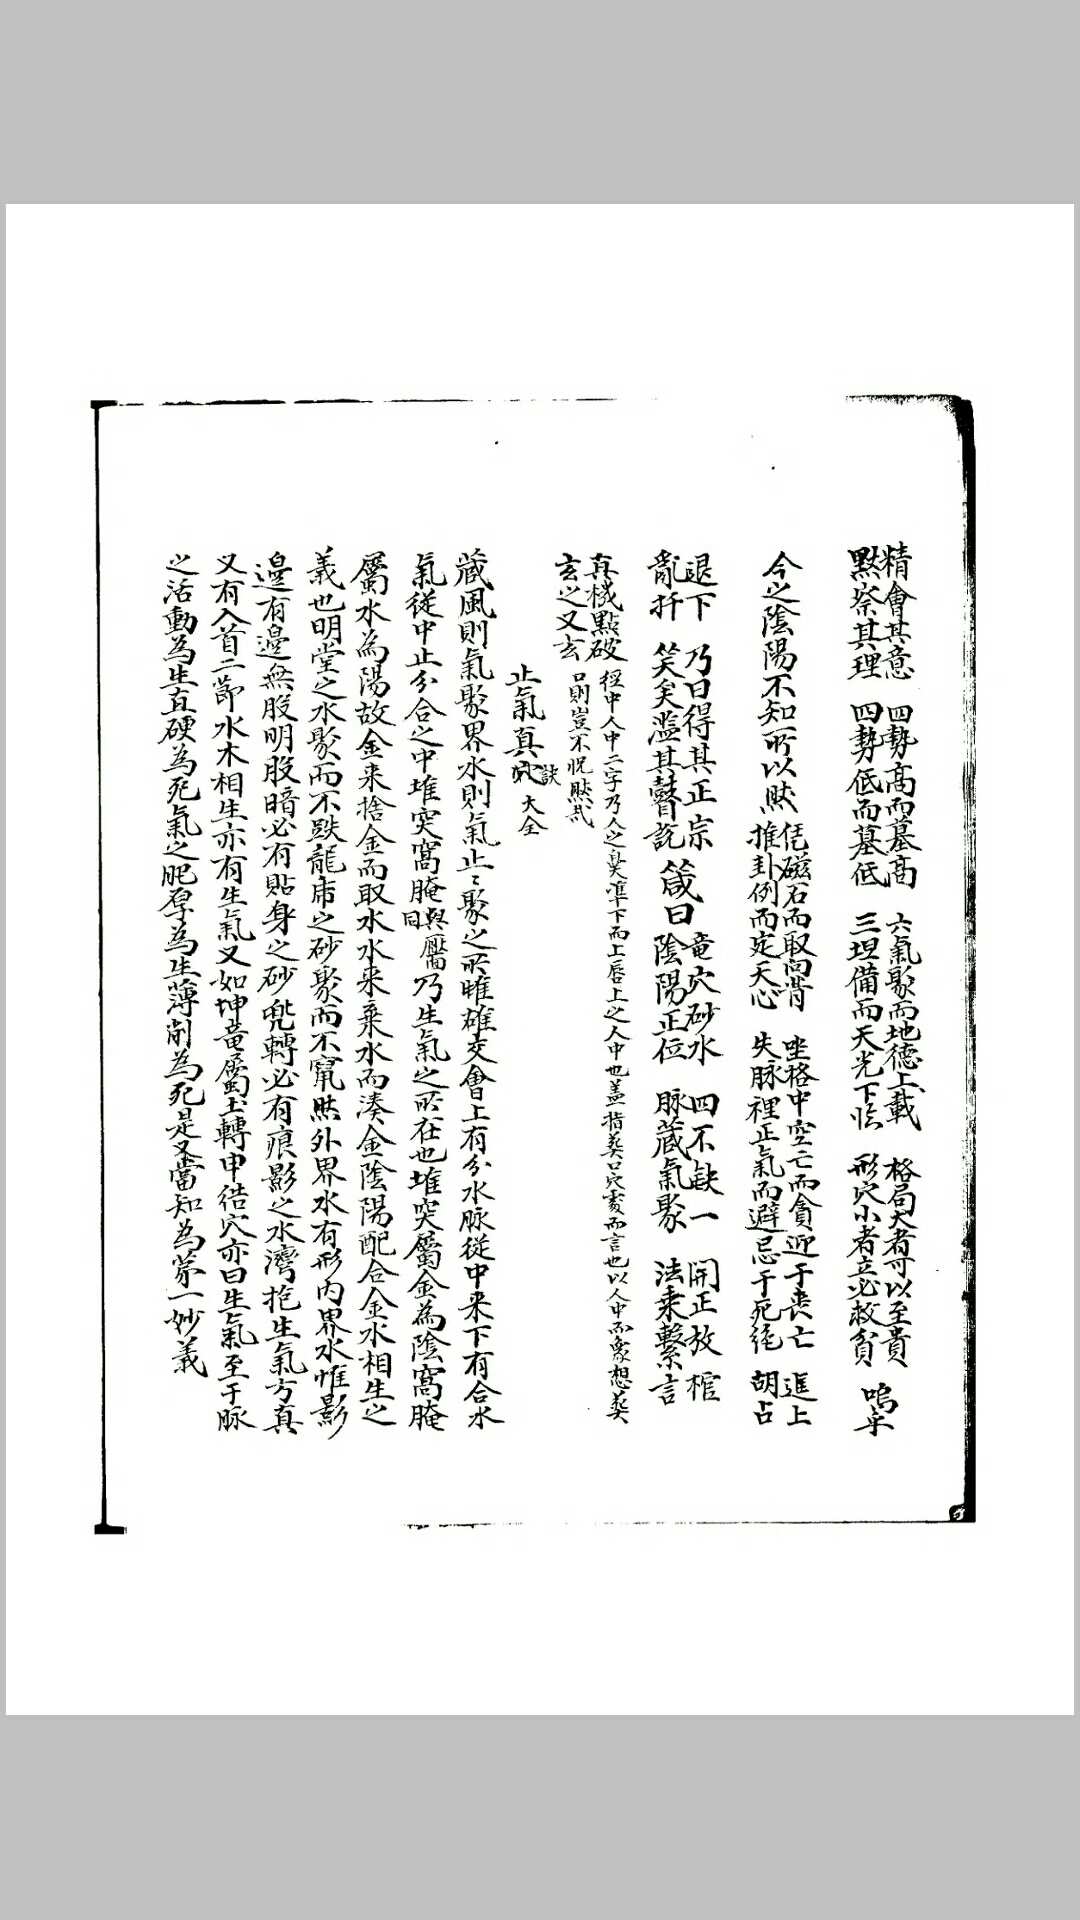 精會其意 四勢高而墓高 六氣聚而地德上載 格局大者可以至貴
默察其理 四勢低而墓低 三坦備而天光下临 形穴小者立必救貧 嗚乎
今之陰陽不知所以然 任磁石而取向背 坐格中空亡而貪迎于喪亡 進上
推卦例而定天心 失脉裡正氣而避忌于死绝 胡占
退下 乃曰得其正宗 箴曰 竜穴砂水 四不缺一 開正放棺
亂扦 笑矣濫其瞽説 陰陽正位 脉蔵氣聚 法乗繫言
真機點破 經中人中二字乃人之鼻準下而上唇上之人中也盖指葬口穴處而言也以人中而象想葬
玄之又玄 口則豈不怳然哉
止氣真訣 大全
蔵風則氣聚界水則氣止〻聚之所雌雄交會上有分水脉從中来下有合水
氣從中止分合之中堆突窩腌與壓同乃生氣之所在也堆突屬金為陰窩腌
屬水為陽故金来捨金而取水水来乗水而湊金陰陽配合金水相生之
義也明堂之水聚而不跌龍席之砂聚而不竄然外界水有形内界水惟影
邊有邊無股明股暗必有貼身之砂兜轉必有痕影之水灣抱生氣方真
又有入首二節水木相生亦有生氣又如坤竜屬土轉申结穴亦曰生氣至于脉
之活動為生直硬為死氣之肥厚為生薄削為死是又當知為蒙一妙義